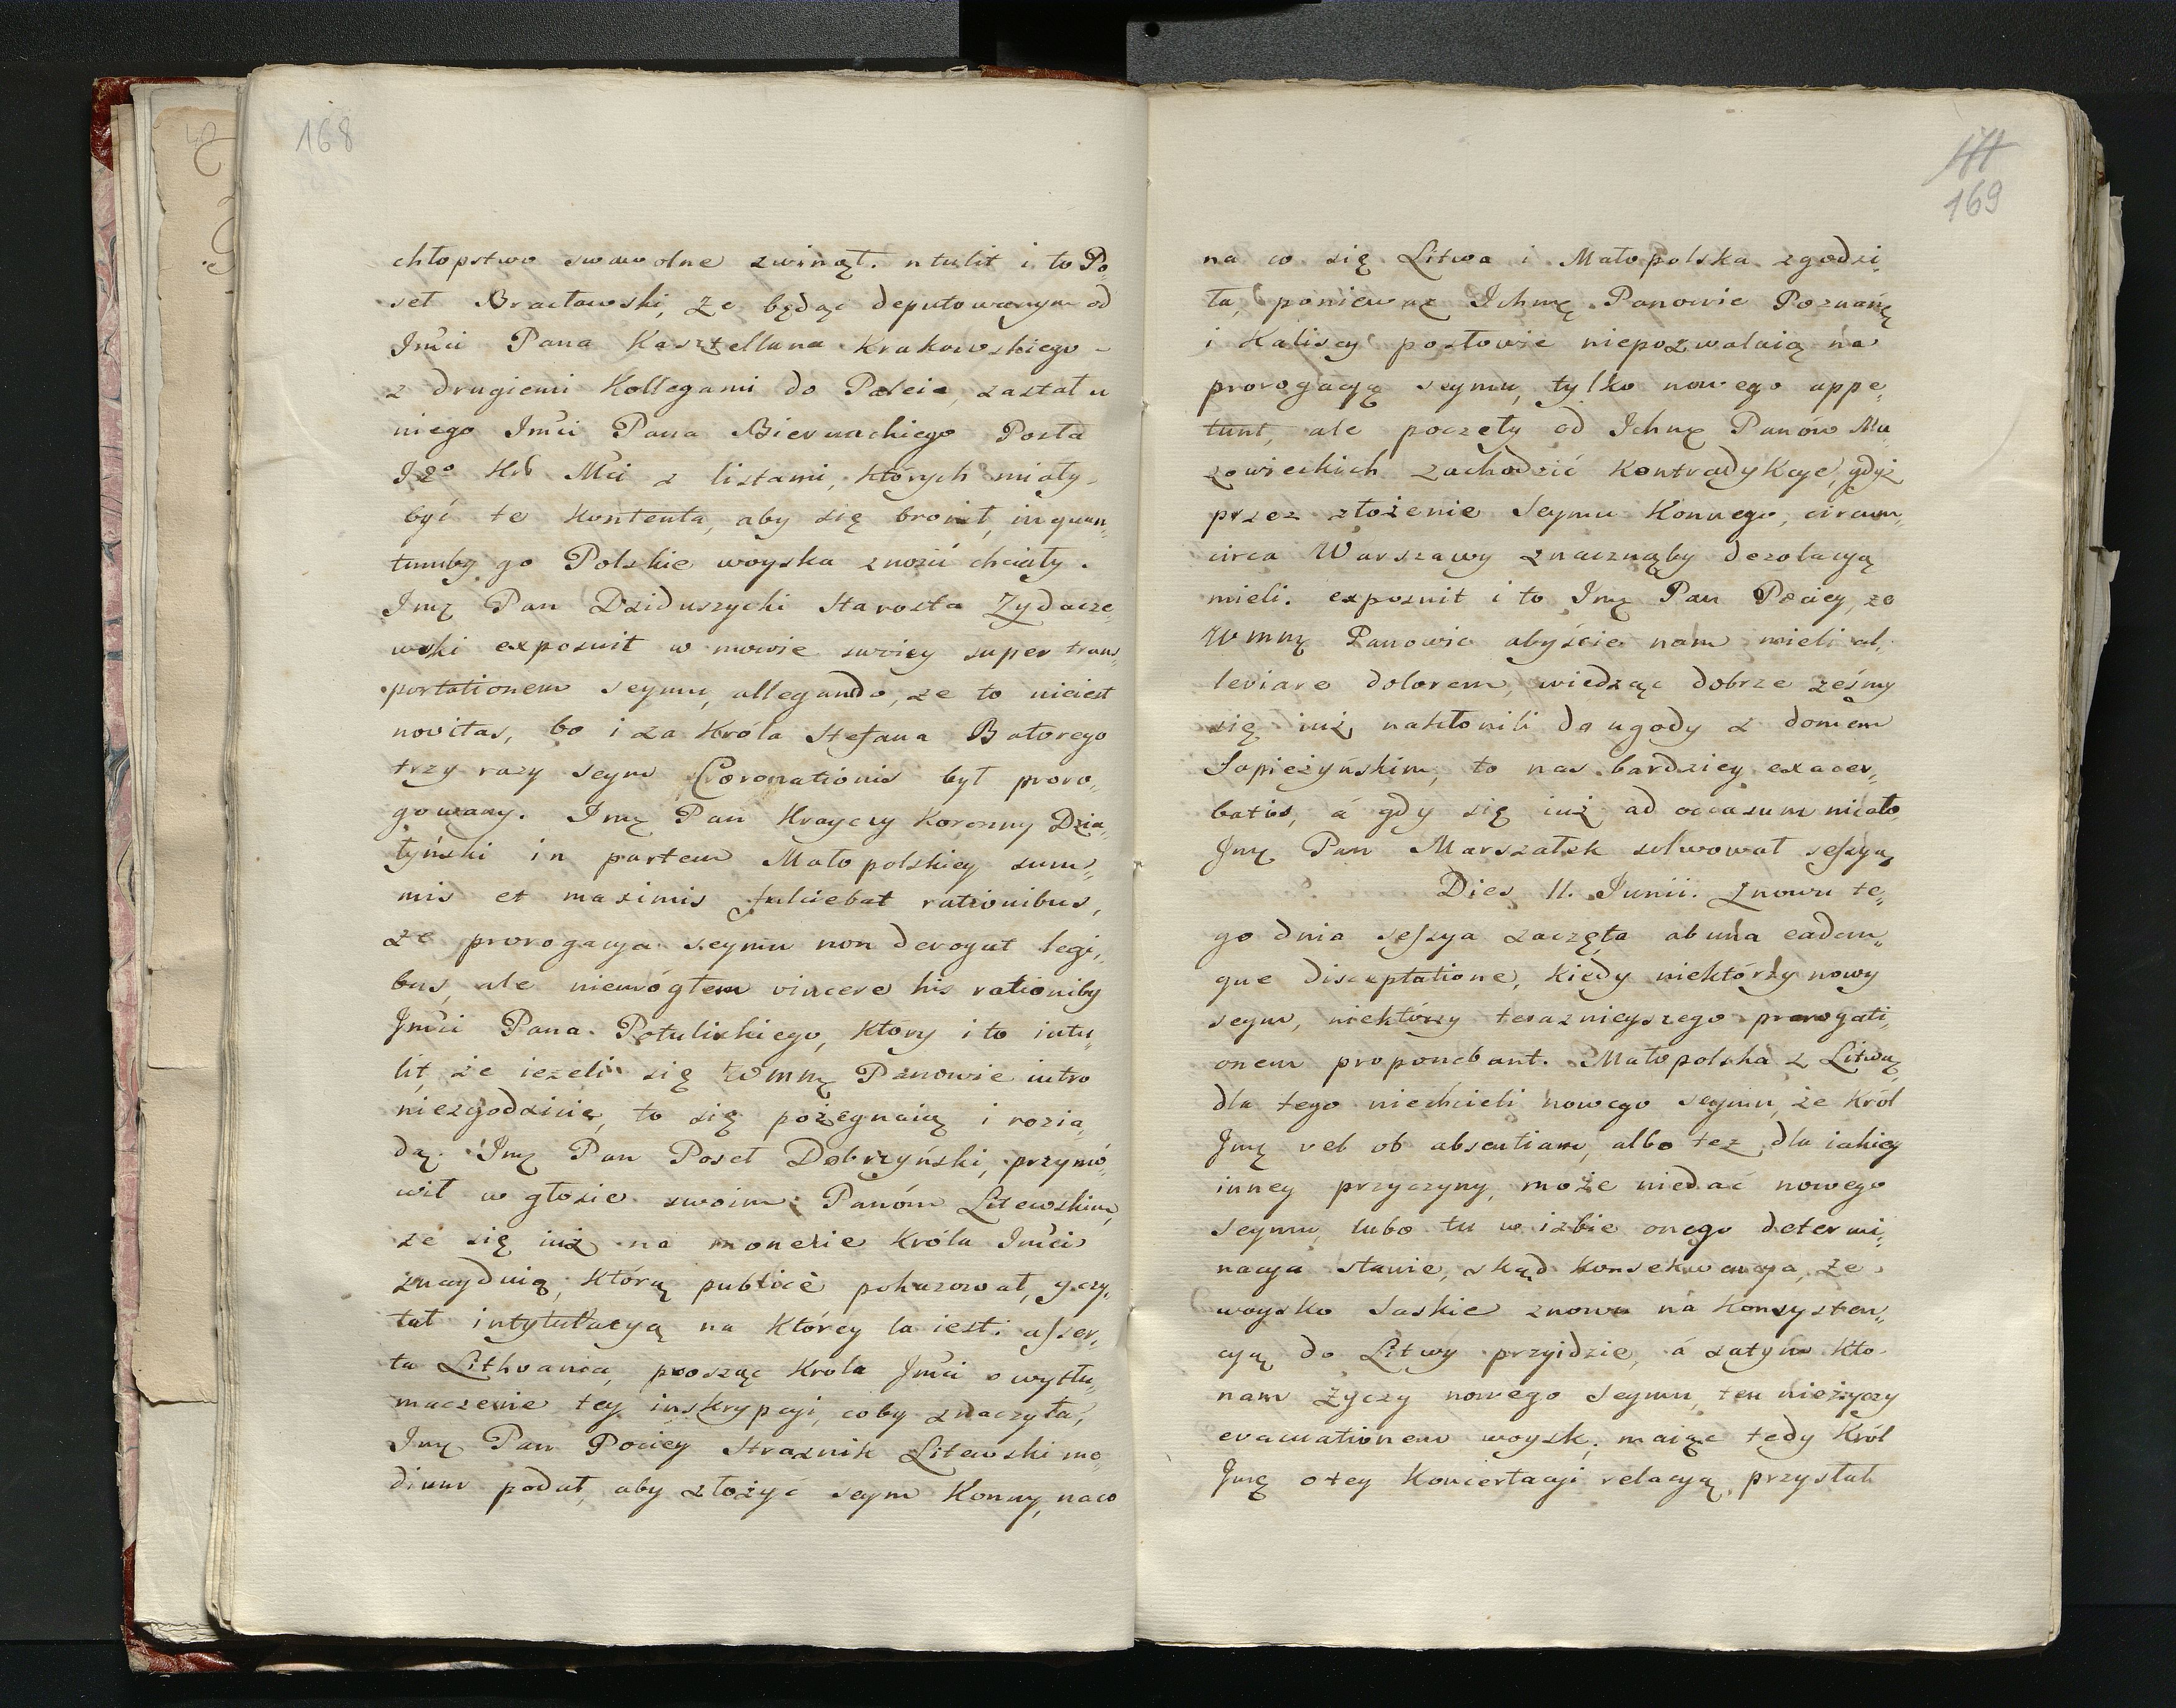 168
chłopstwo swawolne zwinął. ntulit i to Po„
seł Bracławski, że będąc deputowanym od
Jmći Pana Kasztellana Krakowskiego
z drugiemi Kollegami do Paleia, zastał u
niego Jmći Pana Biernackiego Posła
Jgo Kr Mći z listami, których miały
być te kontenta, aby się bronił, inquan„
tumby go Polskie woyska znosić chciały.
Jmę Pan Dziduszycki Starosta Zydacze„
wski exposuit w mowie swoiey super trans„
portationem seymu, allegando, że to nieiest
novitas, bo i za Króla Stefana Batorego
trzy razy seym Coronationis był proro„
gowany. Jmę Pan Krayczy Koronny Dzia„
łyński in partem Małopolskiey sum„
mis et maximis fulciebat rationibus,
że prorogacya seymu non derogat legi„
bus, ale niemógłem vincere his rationiby
Jmći Pana Potulickiego, który i to intu„
lit, że ieżeli się Wmmę Panowie iutro
niezgodzicie, to się pożegnaią i rozia„
dą. Jmę Pan Poseł Dobrzyński, przymó„
wił w głosie swoim Panóm Litewskim,
że się iuż na monecie Króla Jmći
znayduią, którą publicè pokazował, y czy„
tał intytulacyą na którey ta iest: asser„
ta Lithvania, prosząc Króla Jmći o wytłu„
maczenie tey inskrypcyi, coby znaczyła,
Jmę Pan Pociey Straznik Litewski me„
dium podał, aby złożyć seym Konny, naco
171
169
na co się Litwa i Małopolska zgodzi„
ła, ponieważ Ichmę Panowie Poznańscy
i Kaliscy posłowie niepozwalaią na
prorogacyą seymu, tylko nowego appe„
tunt, ale poczęły od Ichmę Panów Ma„
zowieckich zachodzić kontradykcye, gdyż
przez złożenie Seymu Konnego, circum„
circa Warszawy znacznąby dezolacyą
mieli. exposuit i to Jmę Pan Pociey, że
Wmmę Panowie abyście nam mieli al„
leviare dolorem, wiedząc dobrze żeśmy
się iuż nakłonili do ugody z domem
Sapieżyńskim, to nas bardziey exacer„
batis, á gdy się iuż ad occasum miało
Jmę Pan Marszałek solwował sessyą
Dies 11. Junii. Znowu te„
go dnia sessya zaczęta ab una eadem„
que disceptatione, kiedy niektórzy nowy
seym, niektórzy teraznieyszego prorogati„
onem proponebant. Małopolska z Litwą
dla tego niechcieli nowego seymu, że Król
Jmę vel ob absentiam, albo też dla iakiey
inney przyczyny, może niedać nowego
Seymu, lubo tu w izbie onego determi„
nacya stanie, skąd konsekwencya, że
woysko Saskie znowu na konsysten„
cyą do Litwy przyidzie, á zatym kto
nam życzy nowego Seymu, ten nieżyczy
evacuationem woysk; maiąc tedy Król
Jmę otey koncertacyi relacyą, przysłał